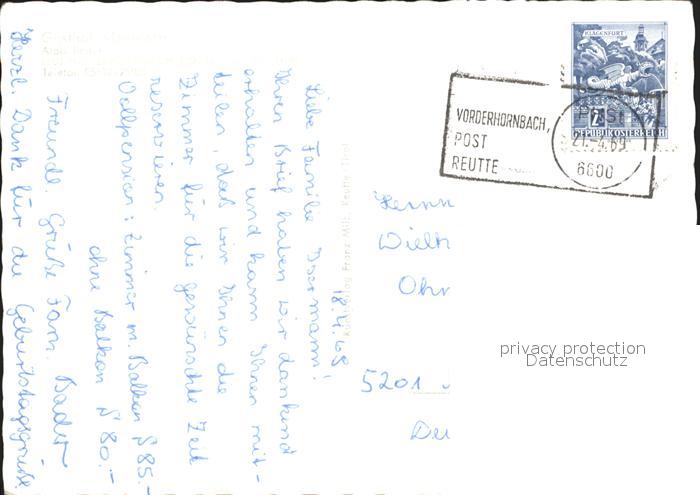 18.4.69
Liebe Familie
Ihren Brief haben wir dankend
erhalten und kann Ihnen mit-
teilen, daß wir Ihnen die
Zimmer für die gewünschte Zeit
reservieren.
Vollpension: Zimmer m. Balkon S 85.-
ohne Balkon S 80.-
Freundl. Grüße Fam. Bader
Herzl. Dank für die Geburtstagsgrüße
Verlag Franz Milz, Reutte Tirol
KLAGENFURT
2
REPUBLIK ÖSTERREICH
VORDERHORNBACH,
POST
REUTTE
POST
21.-4.69
6600
Herrn
5201
privacy protection
Datenschutz